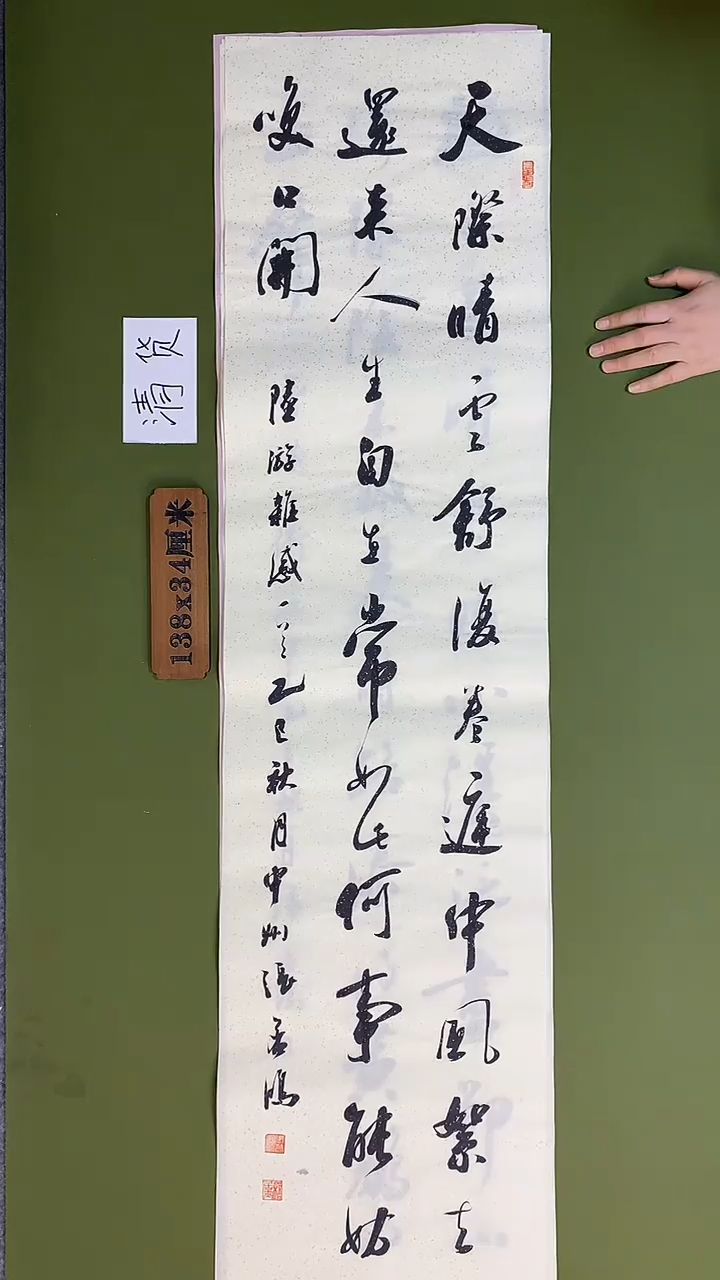 天際晴雲舒復卷庭中風絮去
還来人生自在常如此何事能妨
咲口開
陸游雜感一首乙巳秋月中州張
清货
138x34厘米